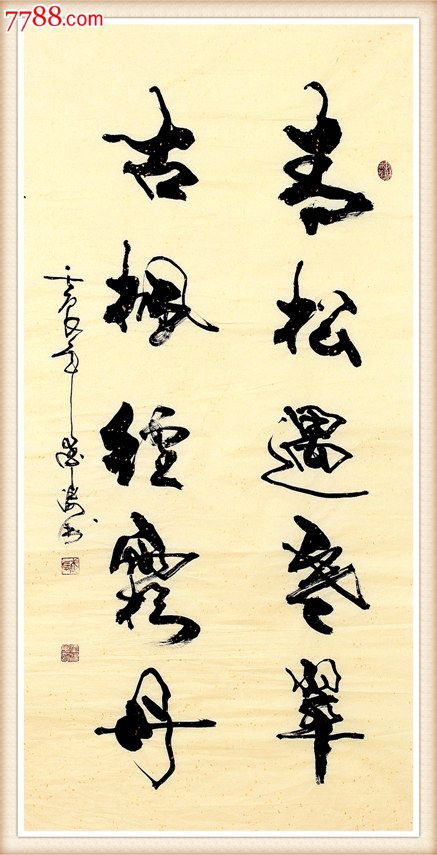 7788.com
青松遇寒翠
古枫经霜丹